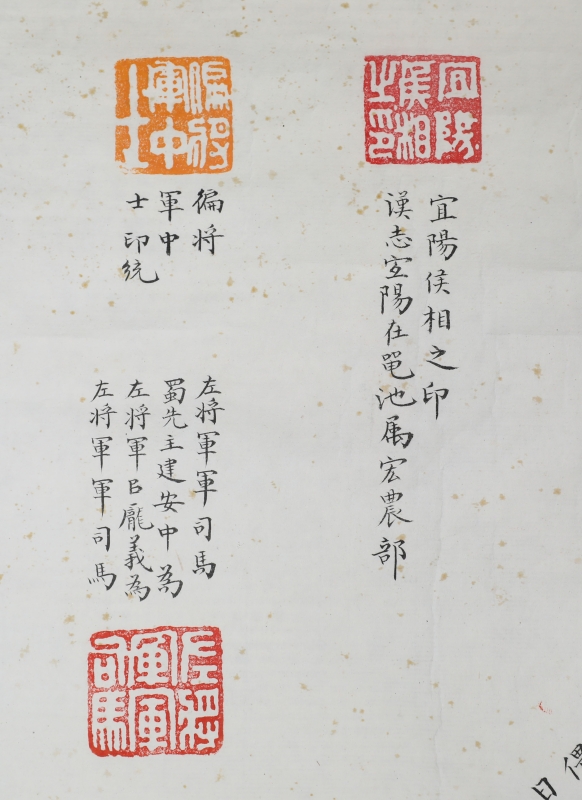 宜陽
侯相
之印
宜陽侯相之印
漢志宜陽在黽池属宏農部
偏將
軍中
士
徧将
軍中
士印統
左将軍軍司馬
蜀先主建安中為
左将軍㠯龐義為
左将軍軍司馬
左將
軍軍
司馬
日